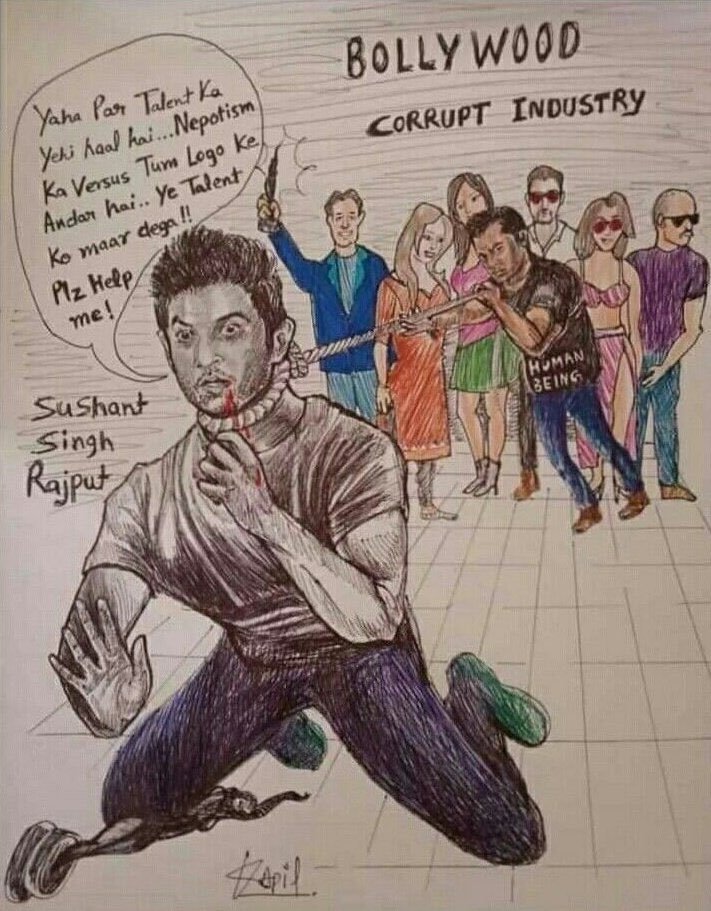 BOLLYWOOD
CORRUPT INDUSTRY
Yaha Par Talent Ka
Yehi haal hai...Nepotism
Ka Versus Tum Logo Ke
Andar hai.. Ye Talent
Ko maar dega!!
Plz Help
me!
Sushant
Singh
Rajput
HUMAN
BEING
Kapil